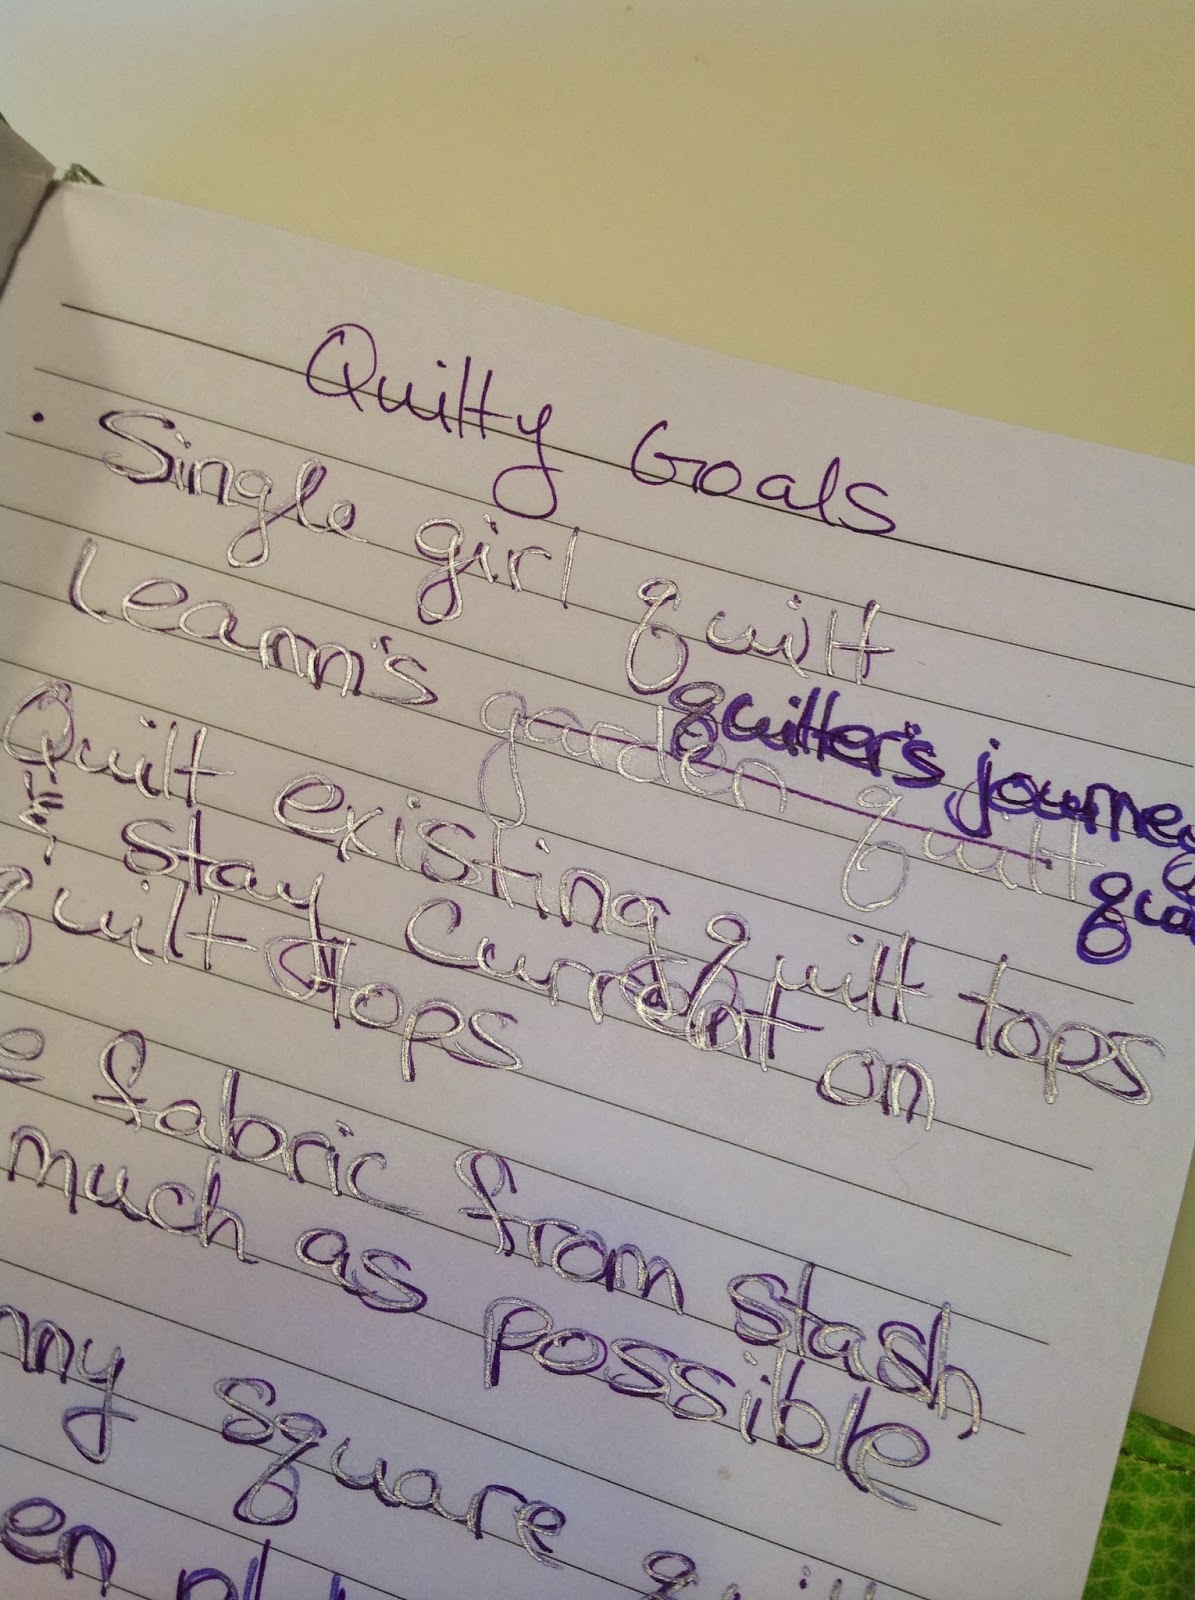 Quilty Goals
• Single girl quilt
Leann's garden quilt quilter's journey
Quilt existing quilt tops
& stay current on
quilt tops
fabric from stash
much as possible
square quilt